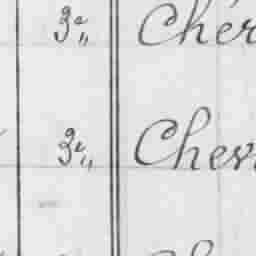 3e„ Cher
3e„ Chev